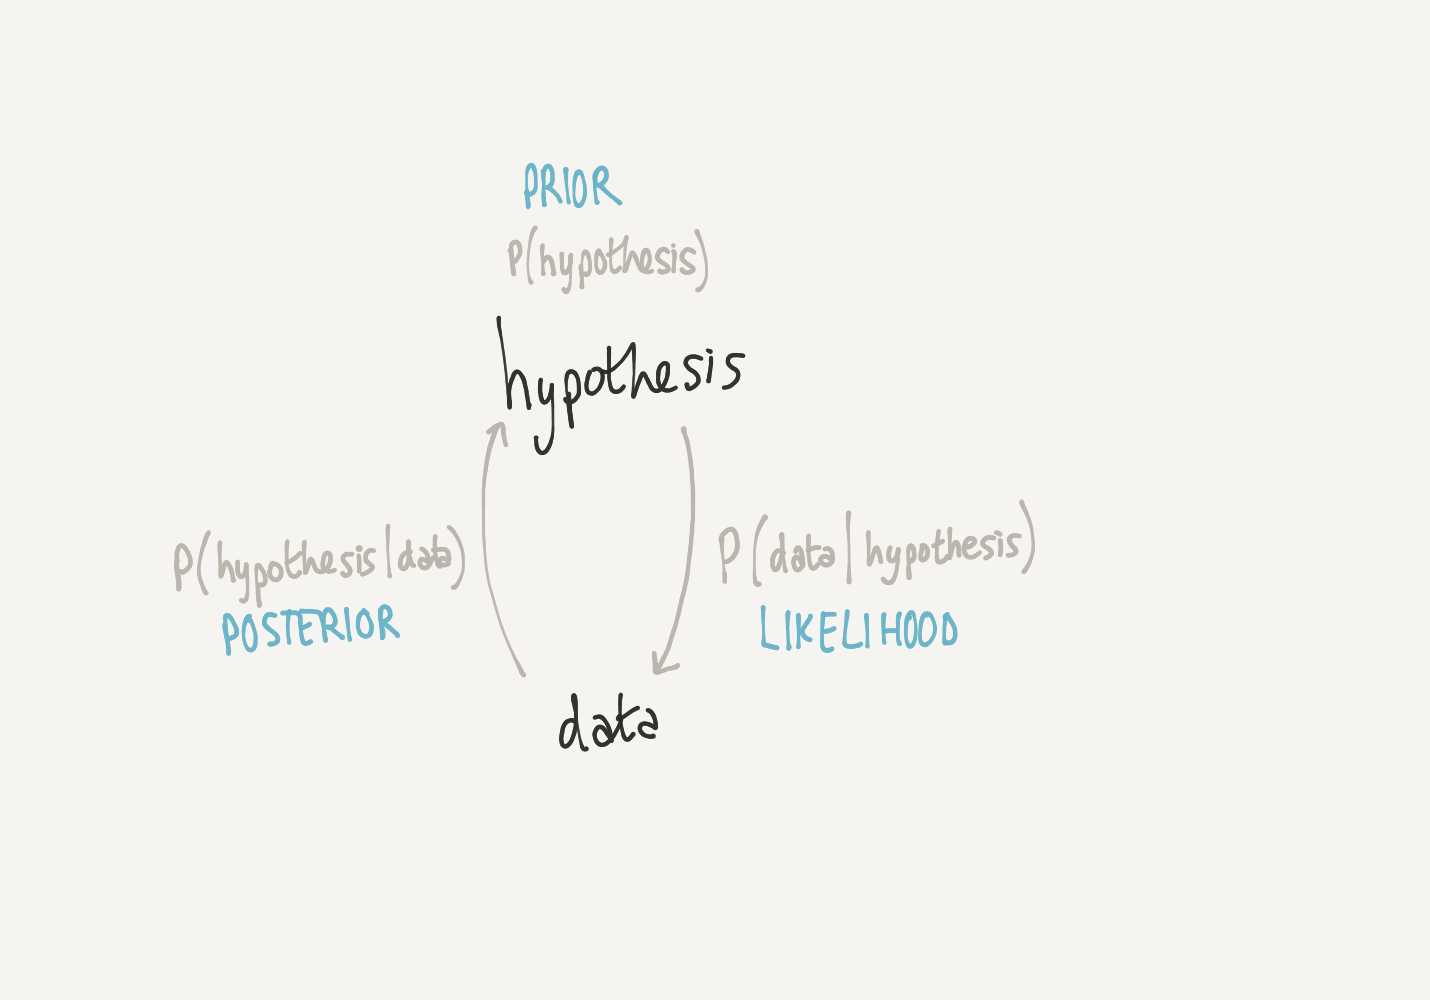 PRIOR
P(hypothesis)
hypothesis
P(hypothesis|data)
POSTERIOR
P(data|hypothesis)
LIKELIHOOD
data